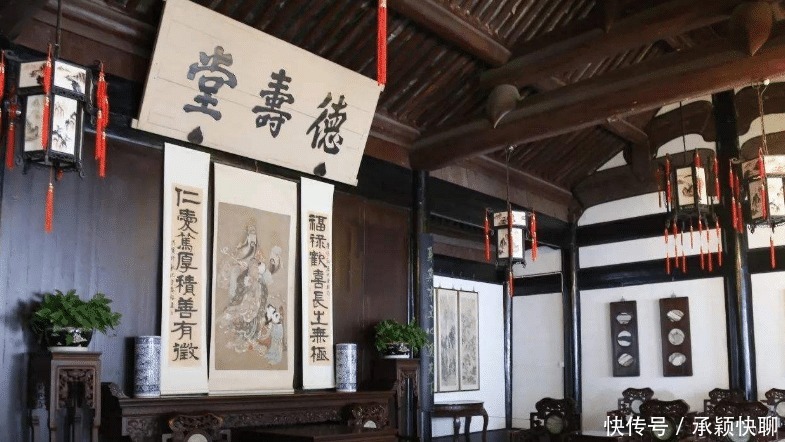 德壽堂
福禄歡喜長生無極
仁愛篤厚積善有徵
快传号 / 承颖快聊